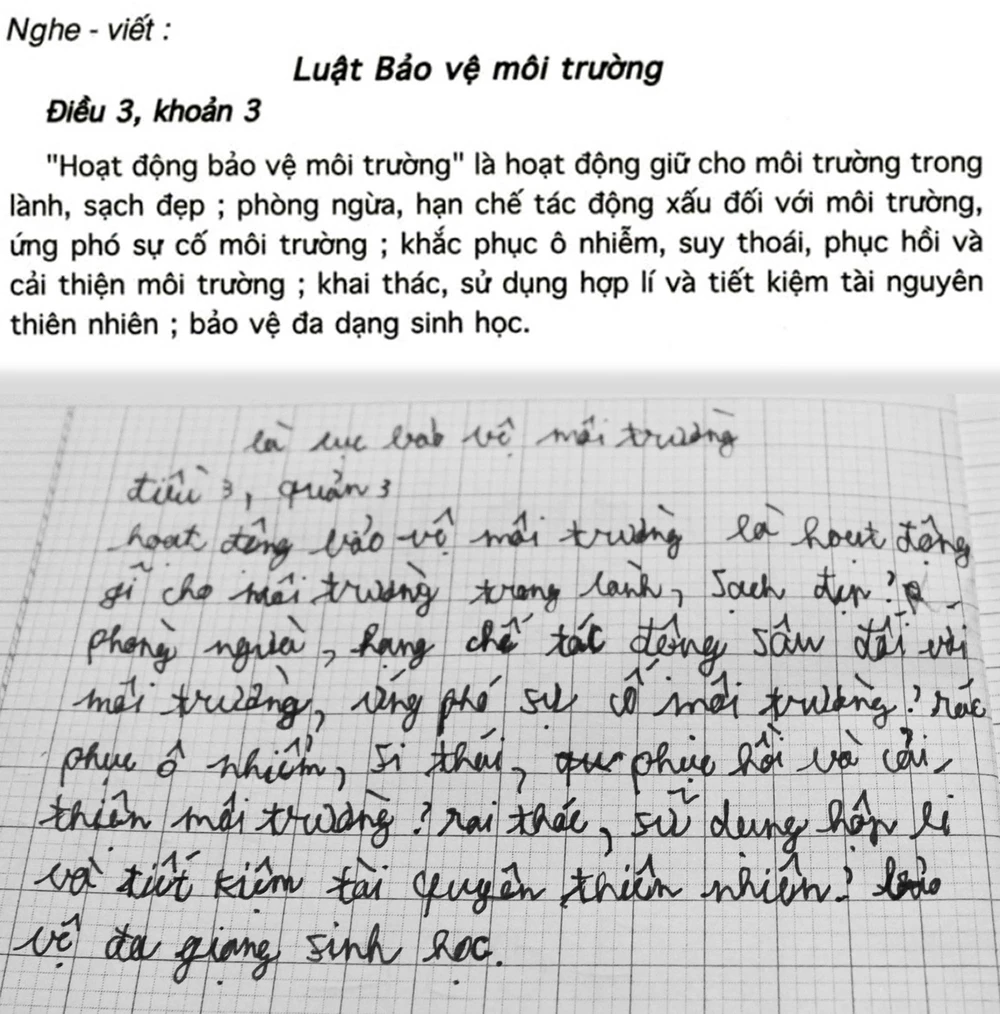 Nghe - viết :
Luật Bảo vệ môi trường
Điều 3, khoản 3
"Hoạt động bảo vệ môi trường" là hoạt động giữ cho môi trường trong
lành, sạch đẹp ; phòng ngừa, hạn chế tác động xấu đối với môi trường,
ứng phó sự cố môi trường ; khắc phục ô nhiễm, suy thoái, phục hồi và
cải thiện môi trường ; khai thác, sử dụng hợp lí và tiết kiệm tài nguyên
thiên nhiên ; bảo vệ đa dạng sinh học.
là lục bab vệ môi trường
điều 3, quản 3
hoat động bảo vệ môi trường là hoat động
gĩ cho môi trường trong lành, sạch đẹp?
phòng người, hang chế tác động sâu đối với
môi trường, ứng phó sự cố môi trường? rắc
phục ô nhiễm, si thái, phục hồi và cải
thiện môi trường? rai thác, sữ dung hộp li
và tiết kiệm tài quyên thiên nhiên? bảo
vệ đa giạng sinh học.